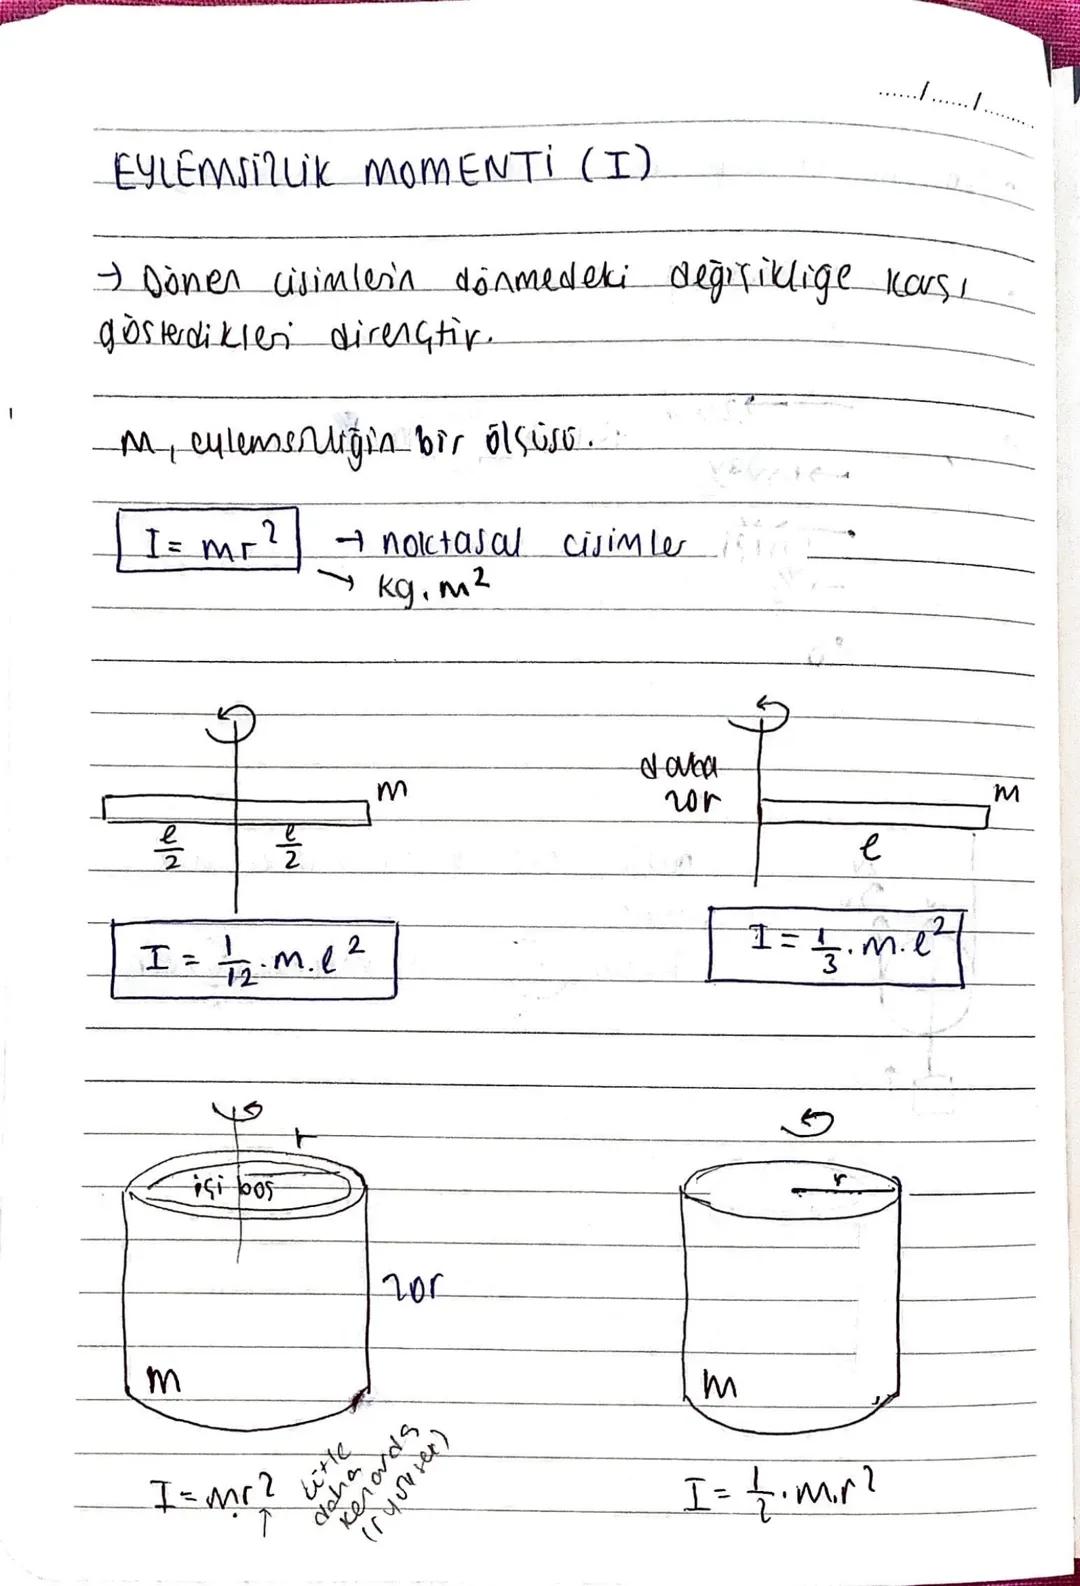 ....../....../.........
EYLEMSİZLİK MOMENTİ (I)
→ Dönen cisimlerin dönmedeki değişikliğe karşı
gösterdikleri dirençtir.
m, eylemsizliğin bir ölçüsü.
I = mr² → noktasal cisimler
→ kg.m²
m
daha
zor
m
l/2 l/2
l
I = 1/12 . m . l²
I = 1/3 . m . l²
r
içi boş
r
zor
m
m
I = mr²
kütle
daha
kenarda
(r yüksek)
I = 1/2 . m.r²